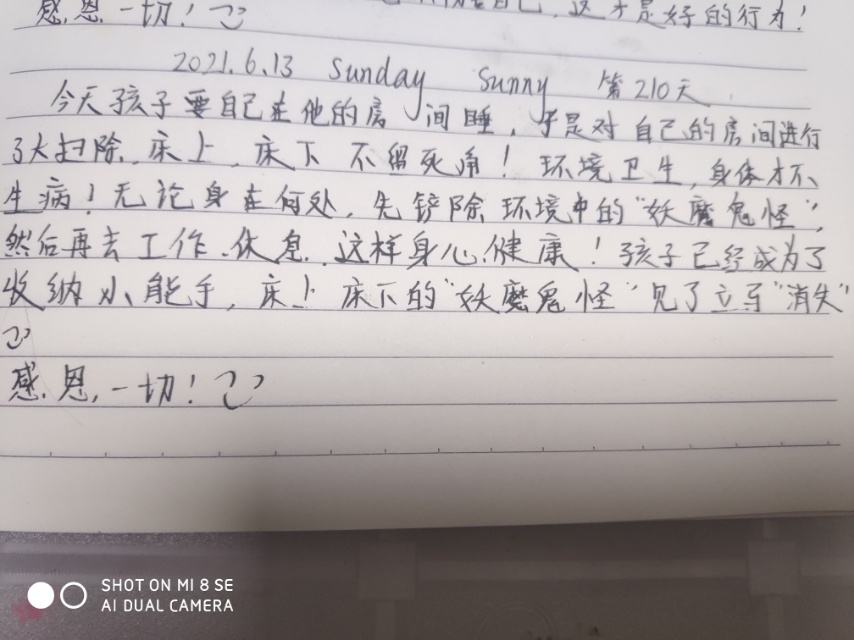 感恩一切!
自己,这才是好的行为!
2021.6.13 Sunday Sunny 第210天
今天孩子要自己在他的房间睡,于是对自己的房间进行
了大扫除,床上,床下不留死角!环境卫生,身体才不
生病!无论身在何处,先铲除环境中的“妖魔鬼怪”,
然后再去工作、休息,这样身心健康!孩子已经成为了
收纳小能手,床上床下的“妖魔鬼怪”见了立马“消失”
感恩一切!
SHOT ON MI 8 SE
AI DUAL CAMERA